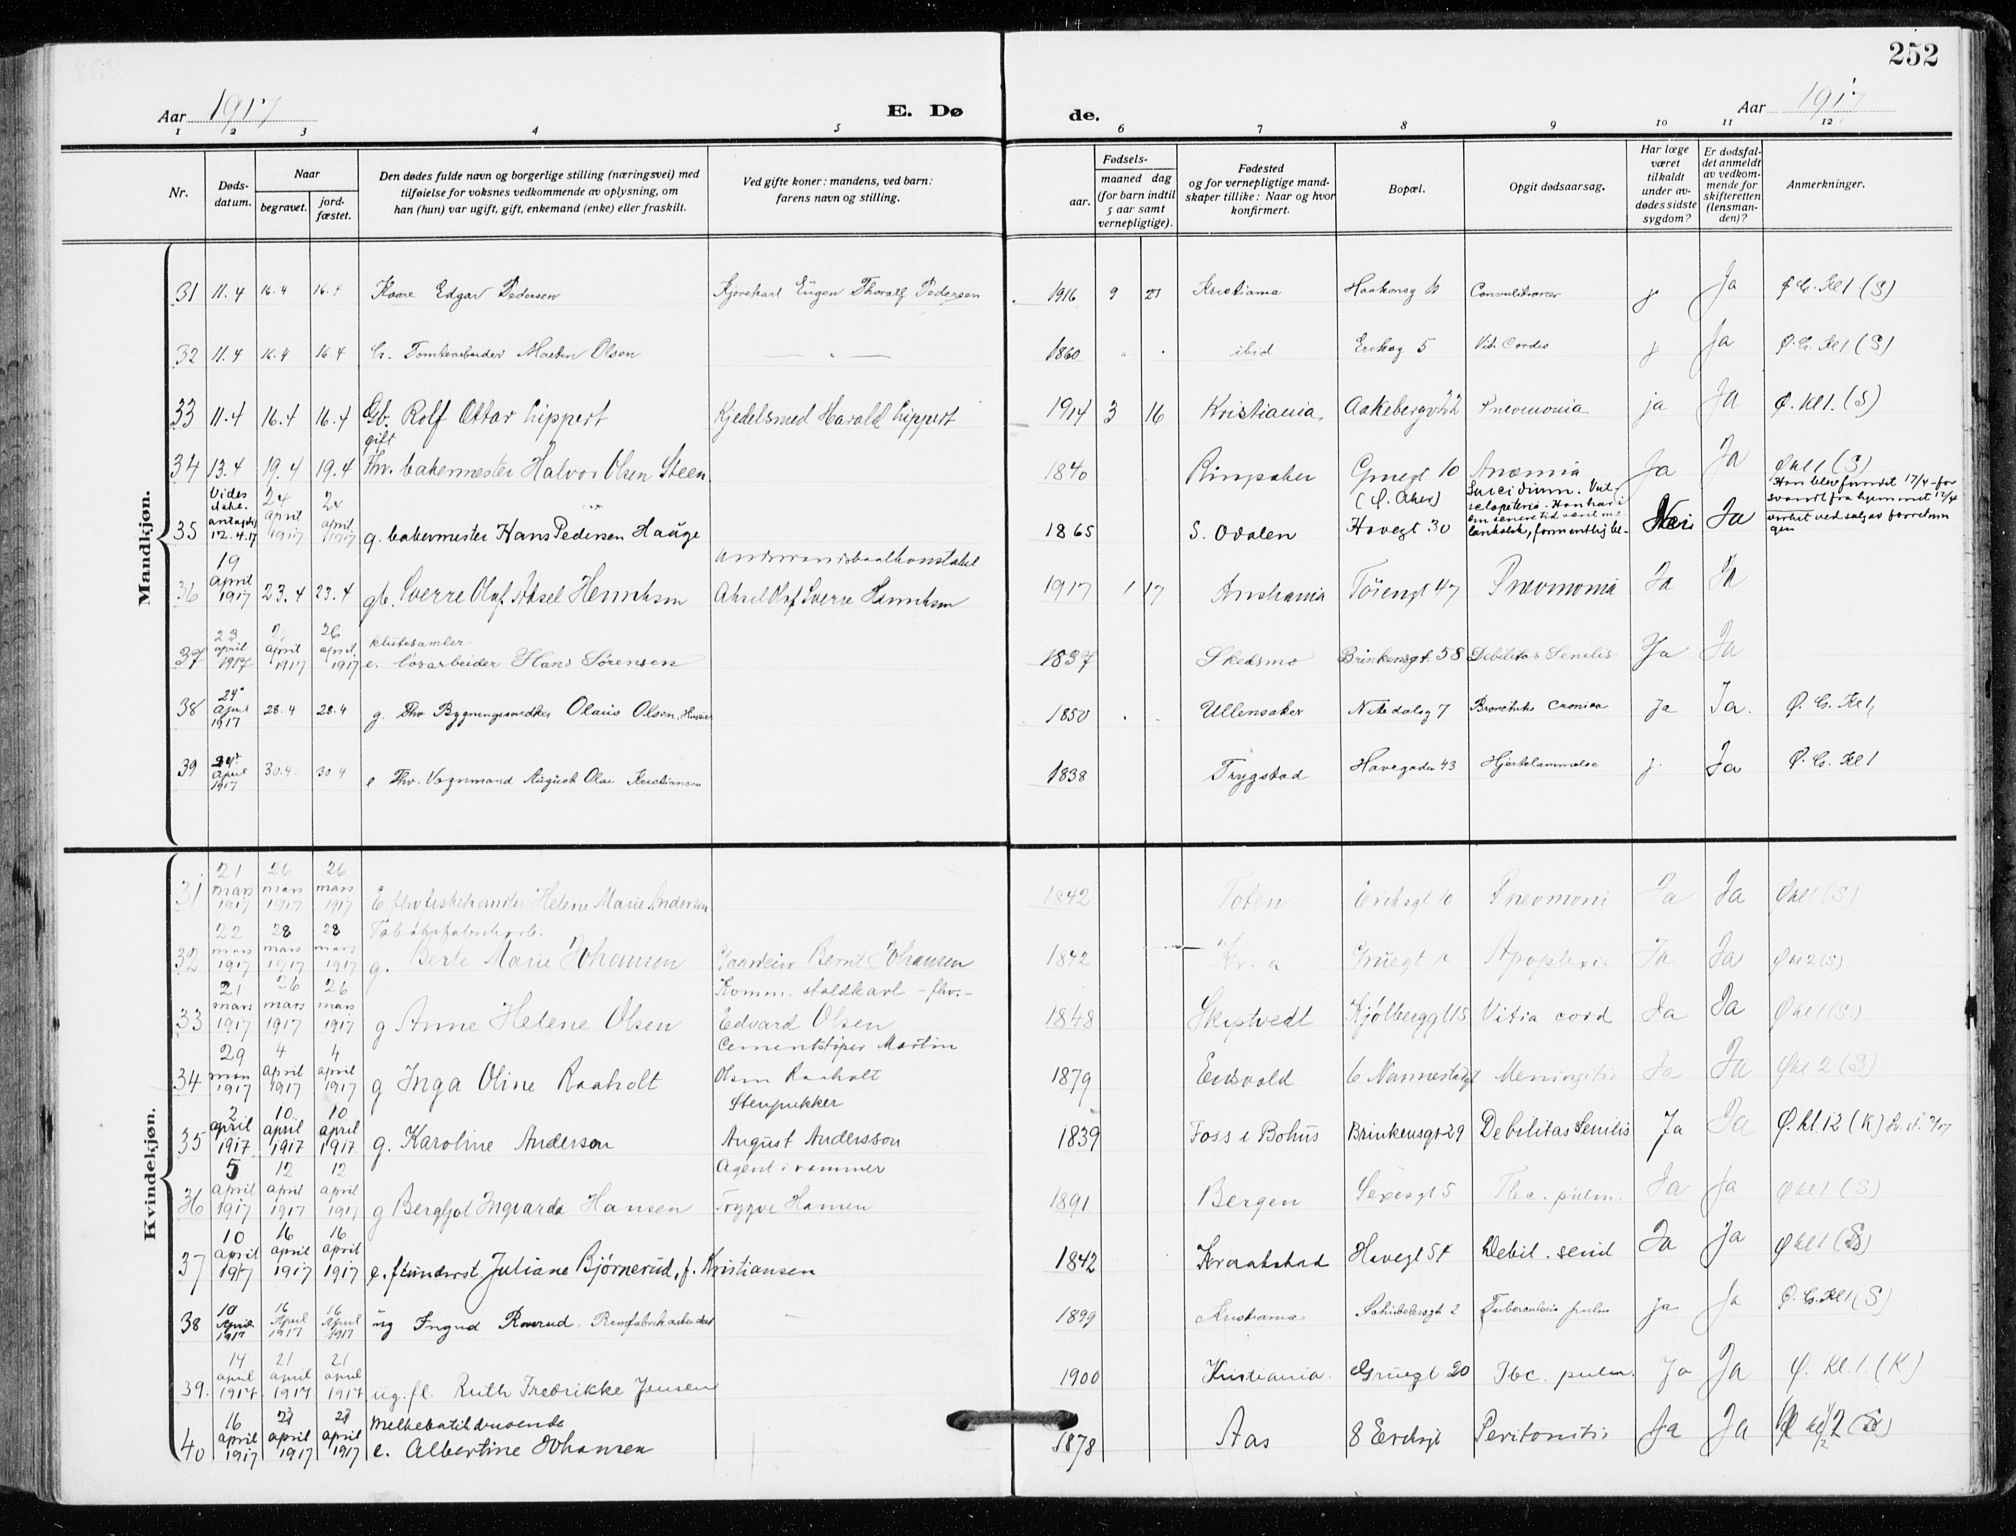 252
Aar 1917 E. Dø de. Aar 1917
1 2 3 4 5 6 7 8 9 10 11 12
Nr.
Døds-
datum.
Naar
begravet.
jord-
fæstet.
Den dødes fulde navn og borgerlige stilling (næringsvei) med
tilføielse for voksnes vedkommende av oplysning, om
han (hun) var ugift, gift, enkemand (enke) eller fraskilt.
Ved gifte koner: mandens, ved barn:
farens navn og stilling.
Fødsels-
aar.
maaned dag
(for barn indtil
5 aar samt
vernepligtige).
Fødested
og for vernepligtige mand-
skaper tillike: Naar og hvor
konfirmert.
Bopæl.
Opgit dødsaarsag.
Har læge
været
tilkaldt
under av-
dødes sidste
sygdom?
Er dødsfal-
det anmeldt
av vedkom-
mende for
skifteretten
(lensman-
den)?
Anmerkninger.
Mandkjøn.
31 11.4 16.4 16.4 Kaare Edgar Pedersen Kjørekarl Eugen Thoralf Pedersen 1916 9 21 Kristiania Haakonsg Convulsioner j Ja Ø. G. Kl 1 (S)
32 11.4 16.4 16.4 G. Tomtearbeider Morten Olsen — " — 1860 ibid Eriksg 5 Vit. Cordis j Ja Ø. G. Kl 1 (S)
33 11.4 16.4 16.4 Gb. Rolf Ottar Lippert Kjedelsmed Harald Lippert 1914 3 16 Kristiania. Aakebergv 22 Pneumonia ja Ja Ø. Kl 1. (S)
gift
34 13.4 19.4 19.4 Fhv. bakermester Halvor Olsen Steen 1840 Ringsaker Gruegt 10 Anæmia Ja Ja Ø kl 1 (S)
35 Vides ikke. antagelig 12.4.17 24 april 1917 24 april 1917 g. bakermester Hans Pedersen Hauge 1865 S. Odalen (Ø. Aker) Havegt 30 Suicidium. Vul. sclopetaria. Han har i den senere tid været melankolsk, formentlig be- Nei Ja Han blev fundet 17/4 forsvandt fra hjemmet 12/4 virket ved salg av forretningen
36 19 April 1917 23.4 23.4 gb. Sverre Olaf Aksel Henriksen Aksel Olaf Sverre Henriksen 1917 1 17 Kristiania Töiengt 47 Pneumonia Ja Ja
klutesamler
37 23 april 1917 april 1917 26 april. 1917 e. Hans Sørensen 1837 Skedsmo Brinkensgt. 58 Debilitas Senilis Ja Ja
38 24 April 1917 28.4 28.4 g. Fhv Bygningssnedker Olaus Olsen, 1850 Ullensaker Nitedalsg 7 Bronchitis Cronica ja Ja. Ø. G. Kl 1,
39 April 1917 30.4. 30.4 e Fhv. Vognmand August Olai Kristiansen 1838 Trygstad Havegaden 43 Hjertelammelse j. Ja Ø. G. Kl 1
Kvindekjøn.
31 21 mars 1917 26 mars 1917 26 mars 1917 E fhv fiskehandler Helene Marie Andersen 1842 Toten Eriksgt 10 Pneomoni Ja Ja Ø kl 1 (S)
32 22 mars 1917 28 mars 1917 28 mars 1917 g. Berte Marie Johansen Bernt Johansen 1842 Kr. a Gruegt Apoplexia Ja Ja Ø kl 2 (S)
Komm. staldkarl - fhv.-
33 21 mars 1917 26 mars 1917 26 mars 1917 g Anne Helene Olsen Edvard Olsen 1848 Skiptvedt Kjølberggt 15 Vitia cord Ja Ja Ø kl 1 (S)
Cementstøper Martin
34 29 mars 1917 4 april 1917 4 april 1917 g Inga Oline Raaholt Olsen Raaholt 1879 Eidsvold 6 Nannestadgt Meningitis Ja Ja Ø kl 2 (S)
Stenpukker
35 2 april 1917 10 april 1917 10 april 1917 g. Karoline Anderson August Andersson 1839 Foss i Bohus Brinkensgt 29 Debilitas Senilis Ja Ja Ø. kl. 12 (K)
Agent i rammer
36 5 april 1917 12 april 1917 12 april 1917 g Bergljot Ingvarda Hansen Trygve Hansen 1891 Bergen Sexesgt 5 Tbc. pulm. Ja Ja Ø kl 1 (S)
37 10 april 1917 16 april 1917 16 april 1917 e. f. underst Juliane Bjørnerud, f. Kristiansen 1842 Kraakstad Havegt 54 Debil. senil Ja Ja Ø kl 1 (S)
38 10 April 1917 16 April 1917 16 April 1917 ug Ingrid Roverud. — 1899 Kristiania Schübelersgt 2 Tuberculosis pulm ja Ja Ø. G. Kl 1 (S)
39. 14 april 1917 21 april 1917 21 april 1917 ug. fl. Ruth Fredrikke Jensen 1900 Kristiania. Gruegt 20 Tbc. pulm. Ja Ja Ø. Kl. 1. (K)
40 16 april 1917 april 1917 april 1917 e. Albertine Johansen 1878 Aas 8 Peritonitis Ja Ja